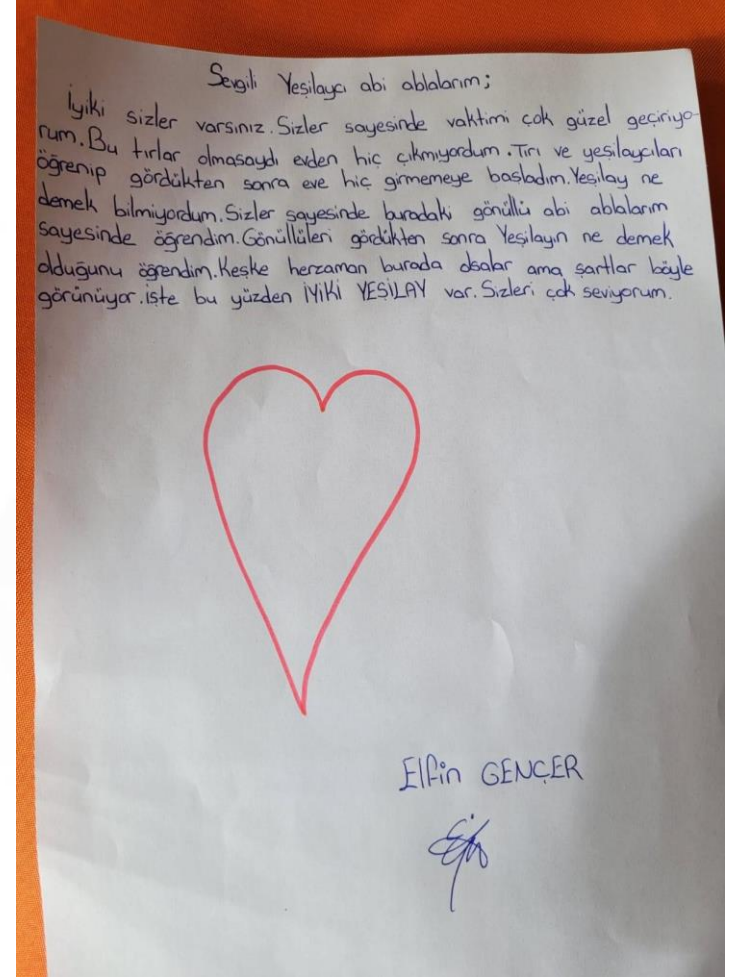 Sevgili Yeşilaycı abi ablalarım;
İyiki sizler varsınız. Sizler sayesinde vaktimi çok güzel geçiriyo-
rum. Bu tırlar olmasaydı evden hiç çıkmıyordum. Tırı ve yeşilaycıları
öğrenip gördükten sonra eve hiç girmemeye başladım. Yeşilay ne
demek bilmiyordum. Sizler sayesinde buradaki gönüllü abi ablalarım
sayesinde öğrendim. Gönüllüleri gördükten sonra Yeşilayın ne demek
olduğunu öğrendim. Keşke herzaman burada olsalar ama şartlar böyle
görünüyor. İşte bu yüzden İYİKİ YEŞİLAY var. Sizleri çok seviyorum.
Elfin GENÇER